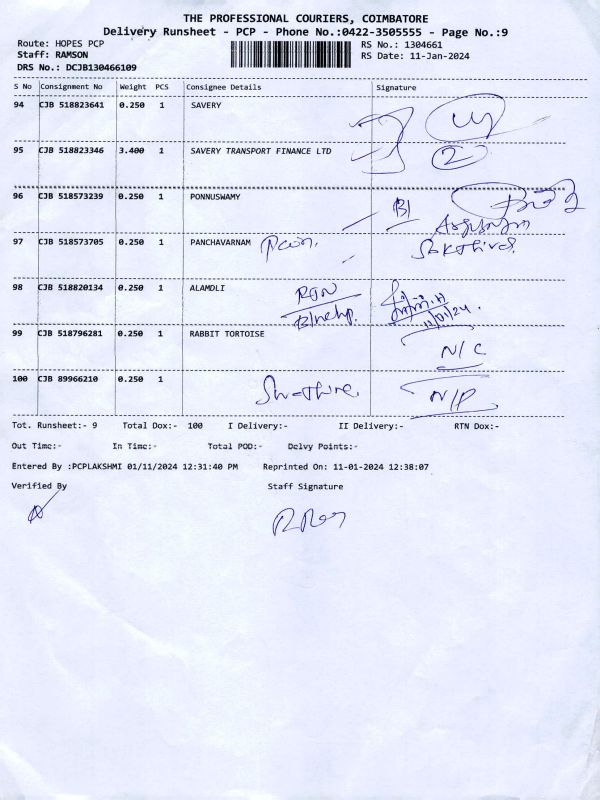 THE PROFESSIONAL COURIERS, COIMBATORE
Delivery Runsheet - PCP - Phone No.:0422-3505555 - Page No.:9
Route: HOPES PCP RS No.: 1304661
Staff: RAMSON RS Date: 11-Jan-2024
DRS No.: DCJB130466109
S No Consignment No Weight PCS Consignee Details Signature
94 CJB 518823641 0.250 1 SAVERY
95 CJB 518823346 3.400 1 SAVERY TRANSPORT FINANCE LTD 2
96 CJB 518573239 0.250 1 PONNUSWAMY
97 CJB 518573705 0.250 1 PANCHAVARNAM
98 CJB 518820134 0.250 1 ALAMDLI
11/01/24.
99 CJB 518796281 0.250 1 RABBIT TORTOISE
N/C
100 CJB 89966210 0.250 1
N/P
Tot. Runsheet:- 9 Total Dox:- 100 I Delivery:- II Delivery:- RTN Dox:-
Out Time:- In Time:- Total POD:- Delvy Points:-
Entered By :PCPLAKSHMI 01/11/2024 12:31:40 PM Reprinted On: 11-01-2024 12:38:07
Verified By Staff Signature